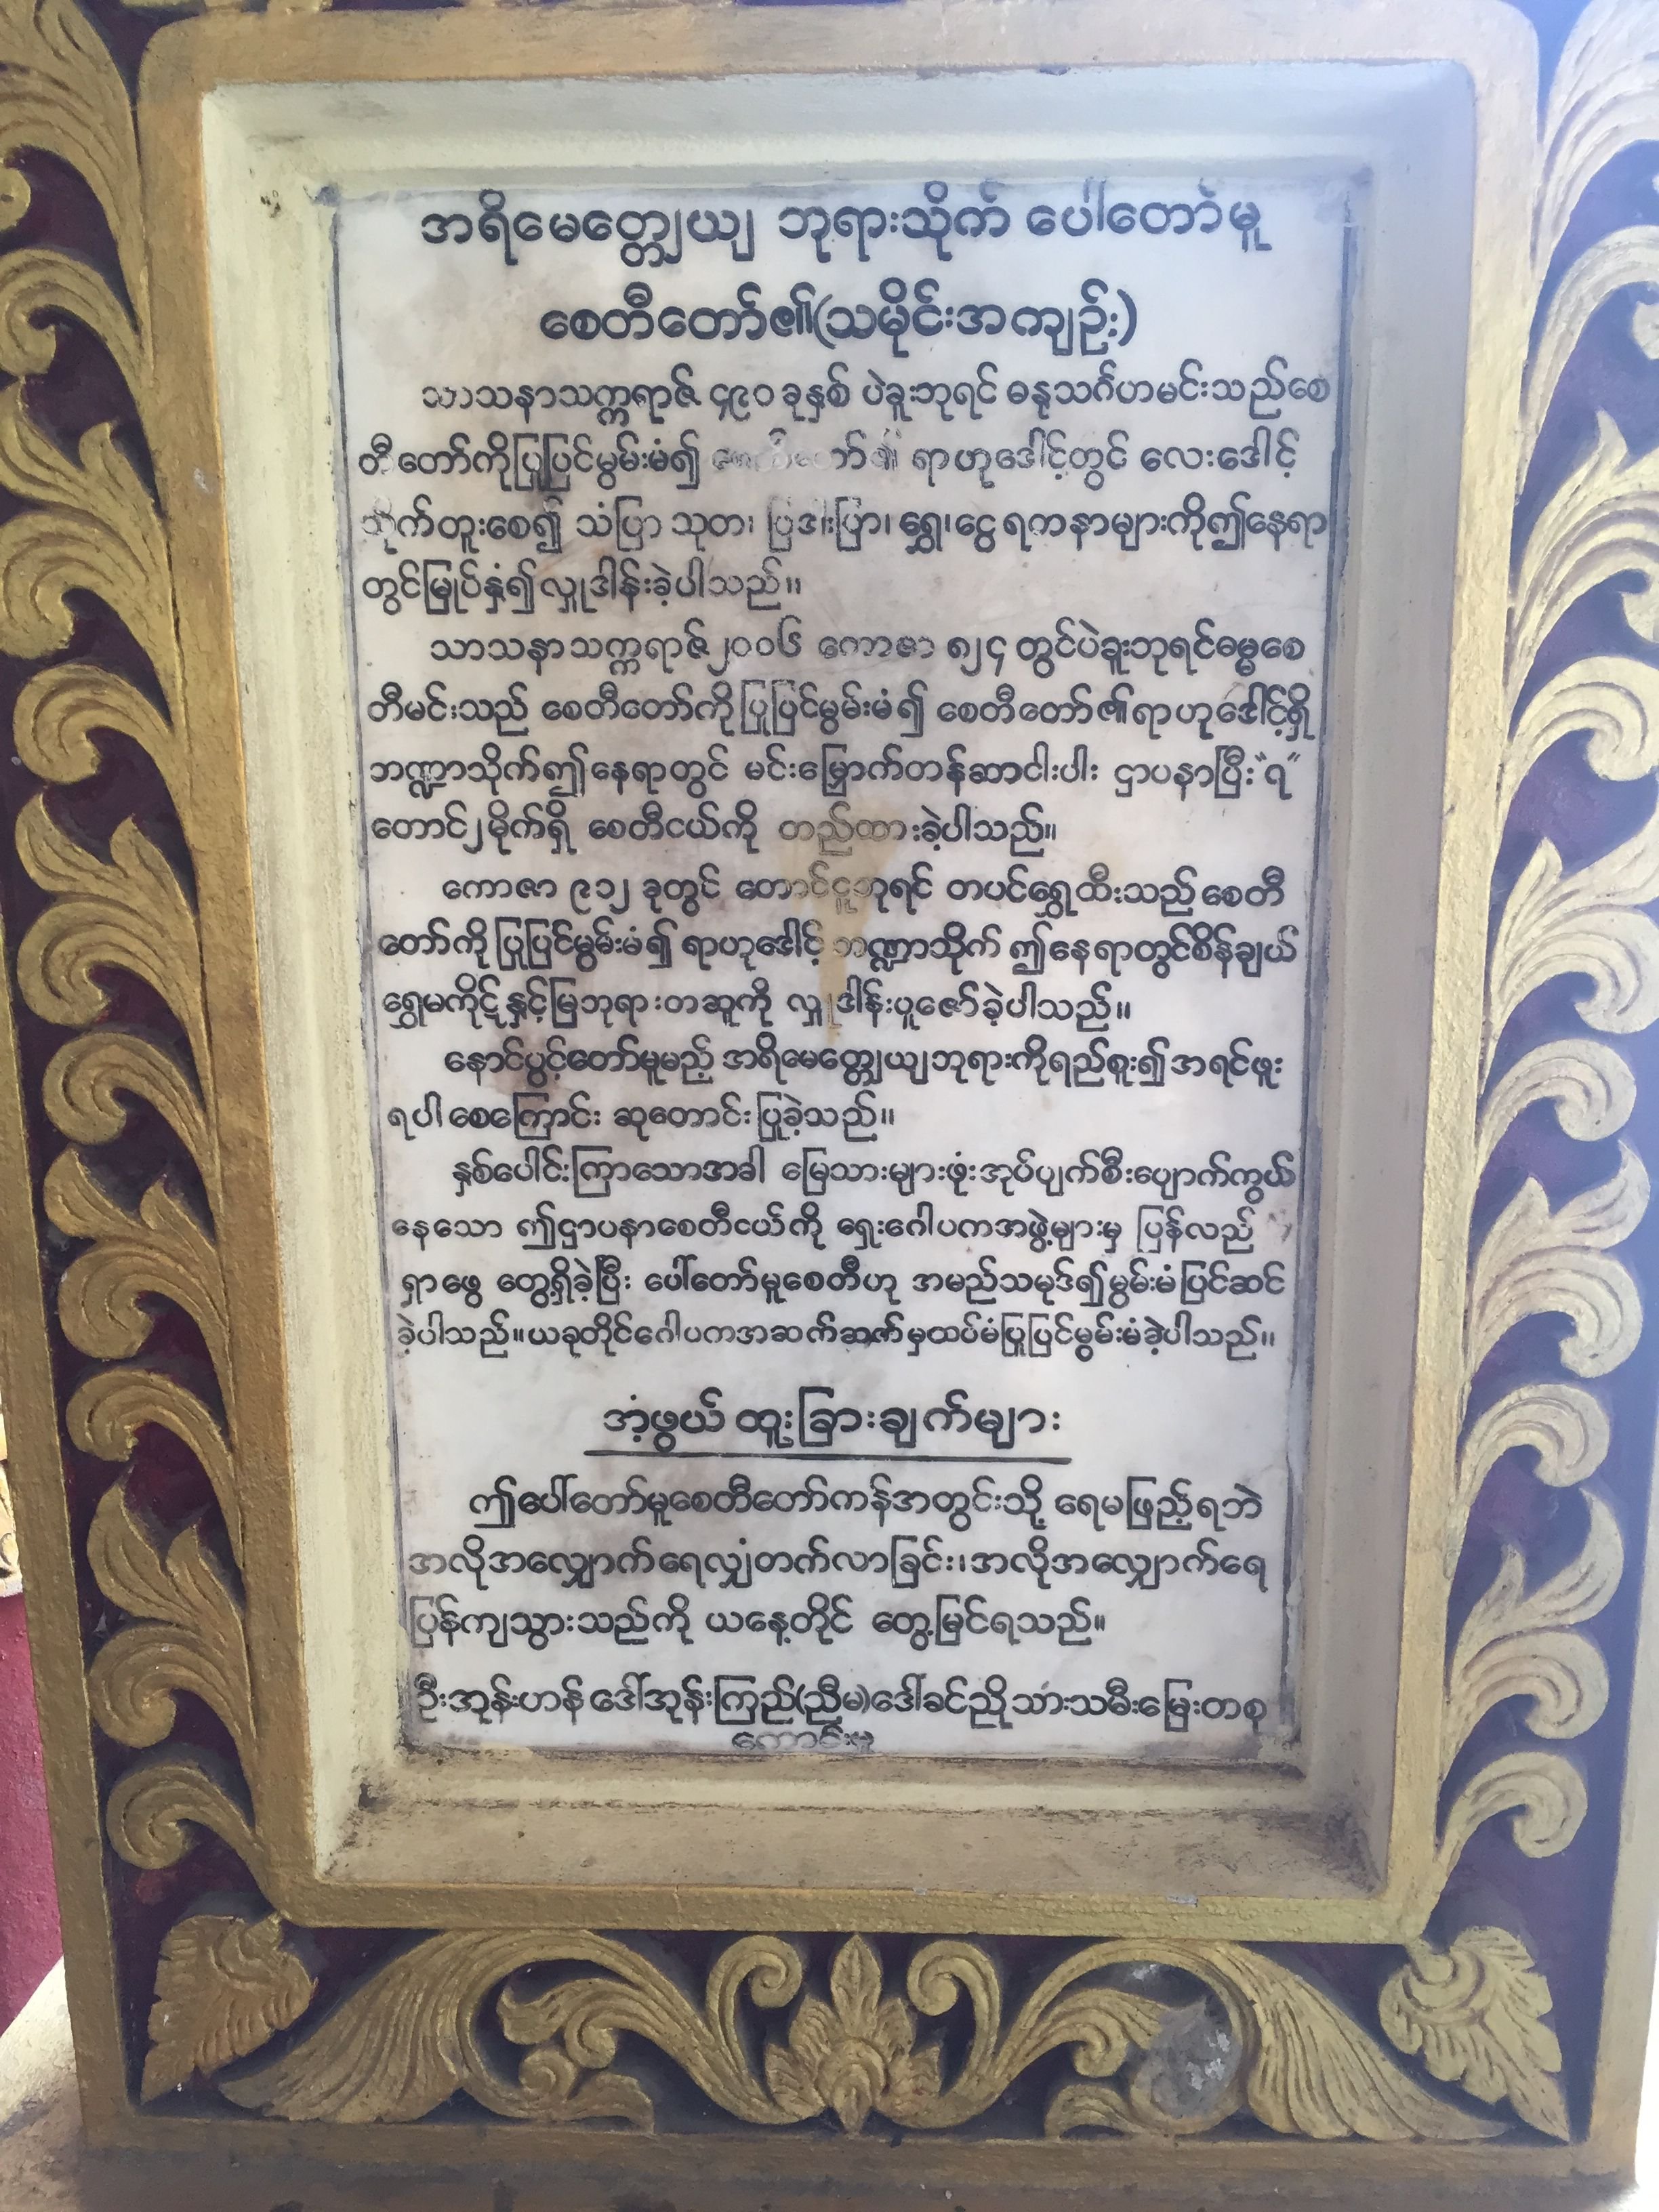 အရိမေတ္တေယျ ဘုရားသိုက် ပေါ်တော်မူ
စေတီတော်၏(သမိုင်းအကျဉ်း)
သာသနာသက္ကရာဇ် ၄၉၀ ခုနှစ် ပဲခူးဘုရင် ဓနုသင်္ဂဟမင်းသည်စေ
တီတော်ကိုပြုပြင်မွမ်းမံ၍ ရာဟုဒေါင့်တွင် လေးဒေါင့်
သိုက်တူးစေ၍ သံပြာ သုတ၊ ပြဒါးပြာ၊ ရွှေ၊ငွေ ရကနာများကိုဤနေရာ
တွင်မြုပ်နှံ၍လှူဒါန်းခဲ့ပါသည်။
သာသနာသက္ကရာဇ်၂၀၀၆ ကောဇာ ၈၂၄ တွင်ပဲခူးဘုရင်ဓမ္မစေ
တီမင်းသည် စေတီတော်ကို ပြုပြင်မွမ်းမံ၍ စေတီတော်၏ရာဟုဒေါင့်ရှိ
ဘဏ္ဍာသိုက်ဤနေရာတွင် မင်းမြှောက်တန်ဆာငါးပါး ဌာပနာပြီး"၇"
တောင်၂မိုက်ရှိ စေတီငယ်ကို တည်ထားခဲ့ပါသည်။
ကောဇာ ၉၁၂ ခုတွင် တောင်ငူဘုရင် တပင်ရွှေထီးသည် စေတီ
တော်ကို ပြုပြင်မွမ်းမံ၍ ရာဟုဒေါင့် ဘဏ္ဍာသိုက် ဤနေရာတွင်စိန်ချယ်
ရွှေမကိုဋ်နှင့်မြဘုရားတဆူကို လှူဒါန်းပူဇော်ခဲ့ပါသည်။
နောင်ပွင့်တော်မူမည့် အရိမေတ္တေယျဘုရားကိုရည်စူး၍အရင်ဖူး
ရပါစေကြောင်း ဆုတောင်းပြုခဲ့သည်။
နှစ်ပေါင်းကြာသောအခါ မြေသားများဖုံးအုပ်ပျက်စီးပျောက်ကွယ်
နေသော ဤဌာပနာစေတီငယ်ကို ရှေးဂေါပကအဖွဲ့များမှ ပြန်လည်
ရှာဖွေ တွေ့ရှိခဲ့ပြီး ပေါ်တော်မူစေတီဟု အမည်သမုဒ်၍မွမ်းမံပြင်ဆင်
ခဲ့ပါသည်။ယခုတိုင်ဂေါပကအဆက်ဆက်မှထပ်မံပြုပြင်မွမ်းမံခဲ့ပါသည်။
အံ့ဖွယ် ထူးခြားချက်များ
ဤပေါ်တော်မူစေတီတော်ကန်အတွင်းသို့ ရေမဖြည့်ရဘဲ
အလိုအလျှောက်ရေလျှံတက်လာခြင်း၊အလိုအလျှောက်ရေ
ပြန်ကျသွားသည်ကို ယနေ့တိုင် တွေ့မြင်ရသည်။
ဦးအုန်းဟန် ဒေါ်အုန်းကြည်(ညီမ)ဒေါ်ခင်ညို သားသမီးမြေးတစု
ကောင်းမှု